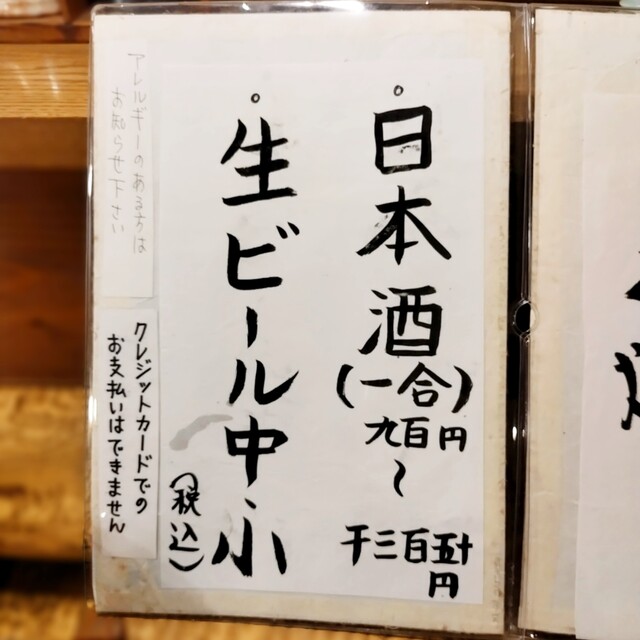 。日本酒
(一合)
九百円
〜
千三百五十
円
。生ビール中・小
(税込)
アレルギーのある方は
お知らせ下さい
クレジットカードでの
お支払いはできません